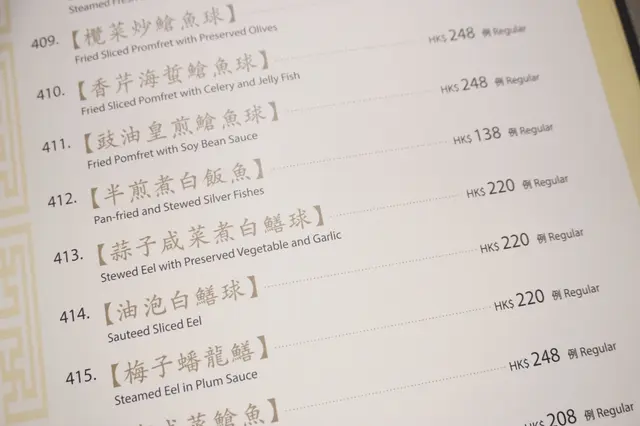 Steamed
409. 【欖菜炒鯧魚球】
Fried Sliced Promfret with Preserved Olives
410. 【香芹海蜇鯧魚球】 HK$ 248 例 Regular
Fried Sliced Pomfret with Celery and Jelly Fish
411. 【豉油皇煎鯧魚球】 HK$ 248 例 Regular
Fried Pomfret with Soy Bean Sauce
412. 【半煎煮白飯魚】 HK$ 138 例 Regular
Pan-fried and Stewed Silver Fishes
413. 【蒜子咸菜煮白鱔球】 HK$ 220 例 Regular
Stewed Eel with Preserved Vegetable and Garlic
414. 【油泡白鱔球】 HK$ 220 例 Regular
Sauteed Sliced Eel
415. 【梅子蟠龍鱔】 HK$ 220 例 Regular
Steamed Eel in Plum Sauce
咸菜鯧魚】 HK$ 248 例 Regular
HK$ 208 例 Regular